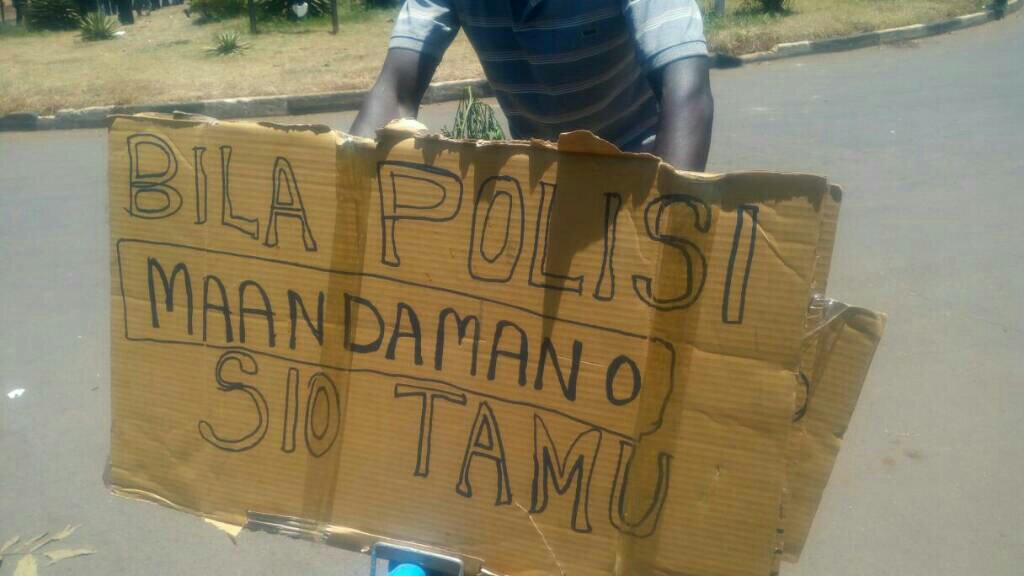 BILA POLISI
MAANDAMANO
SIO TAMU